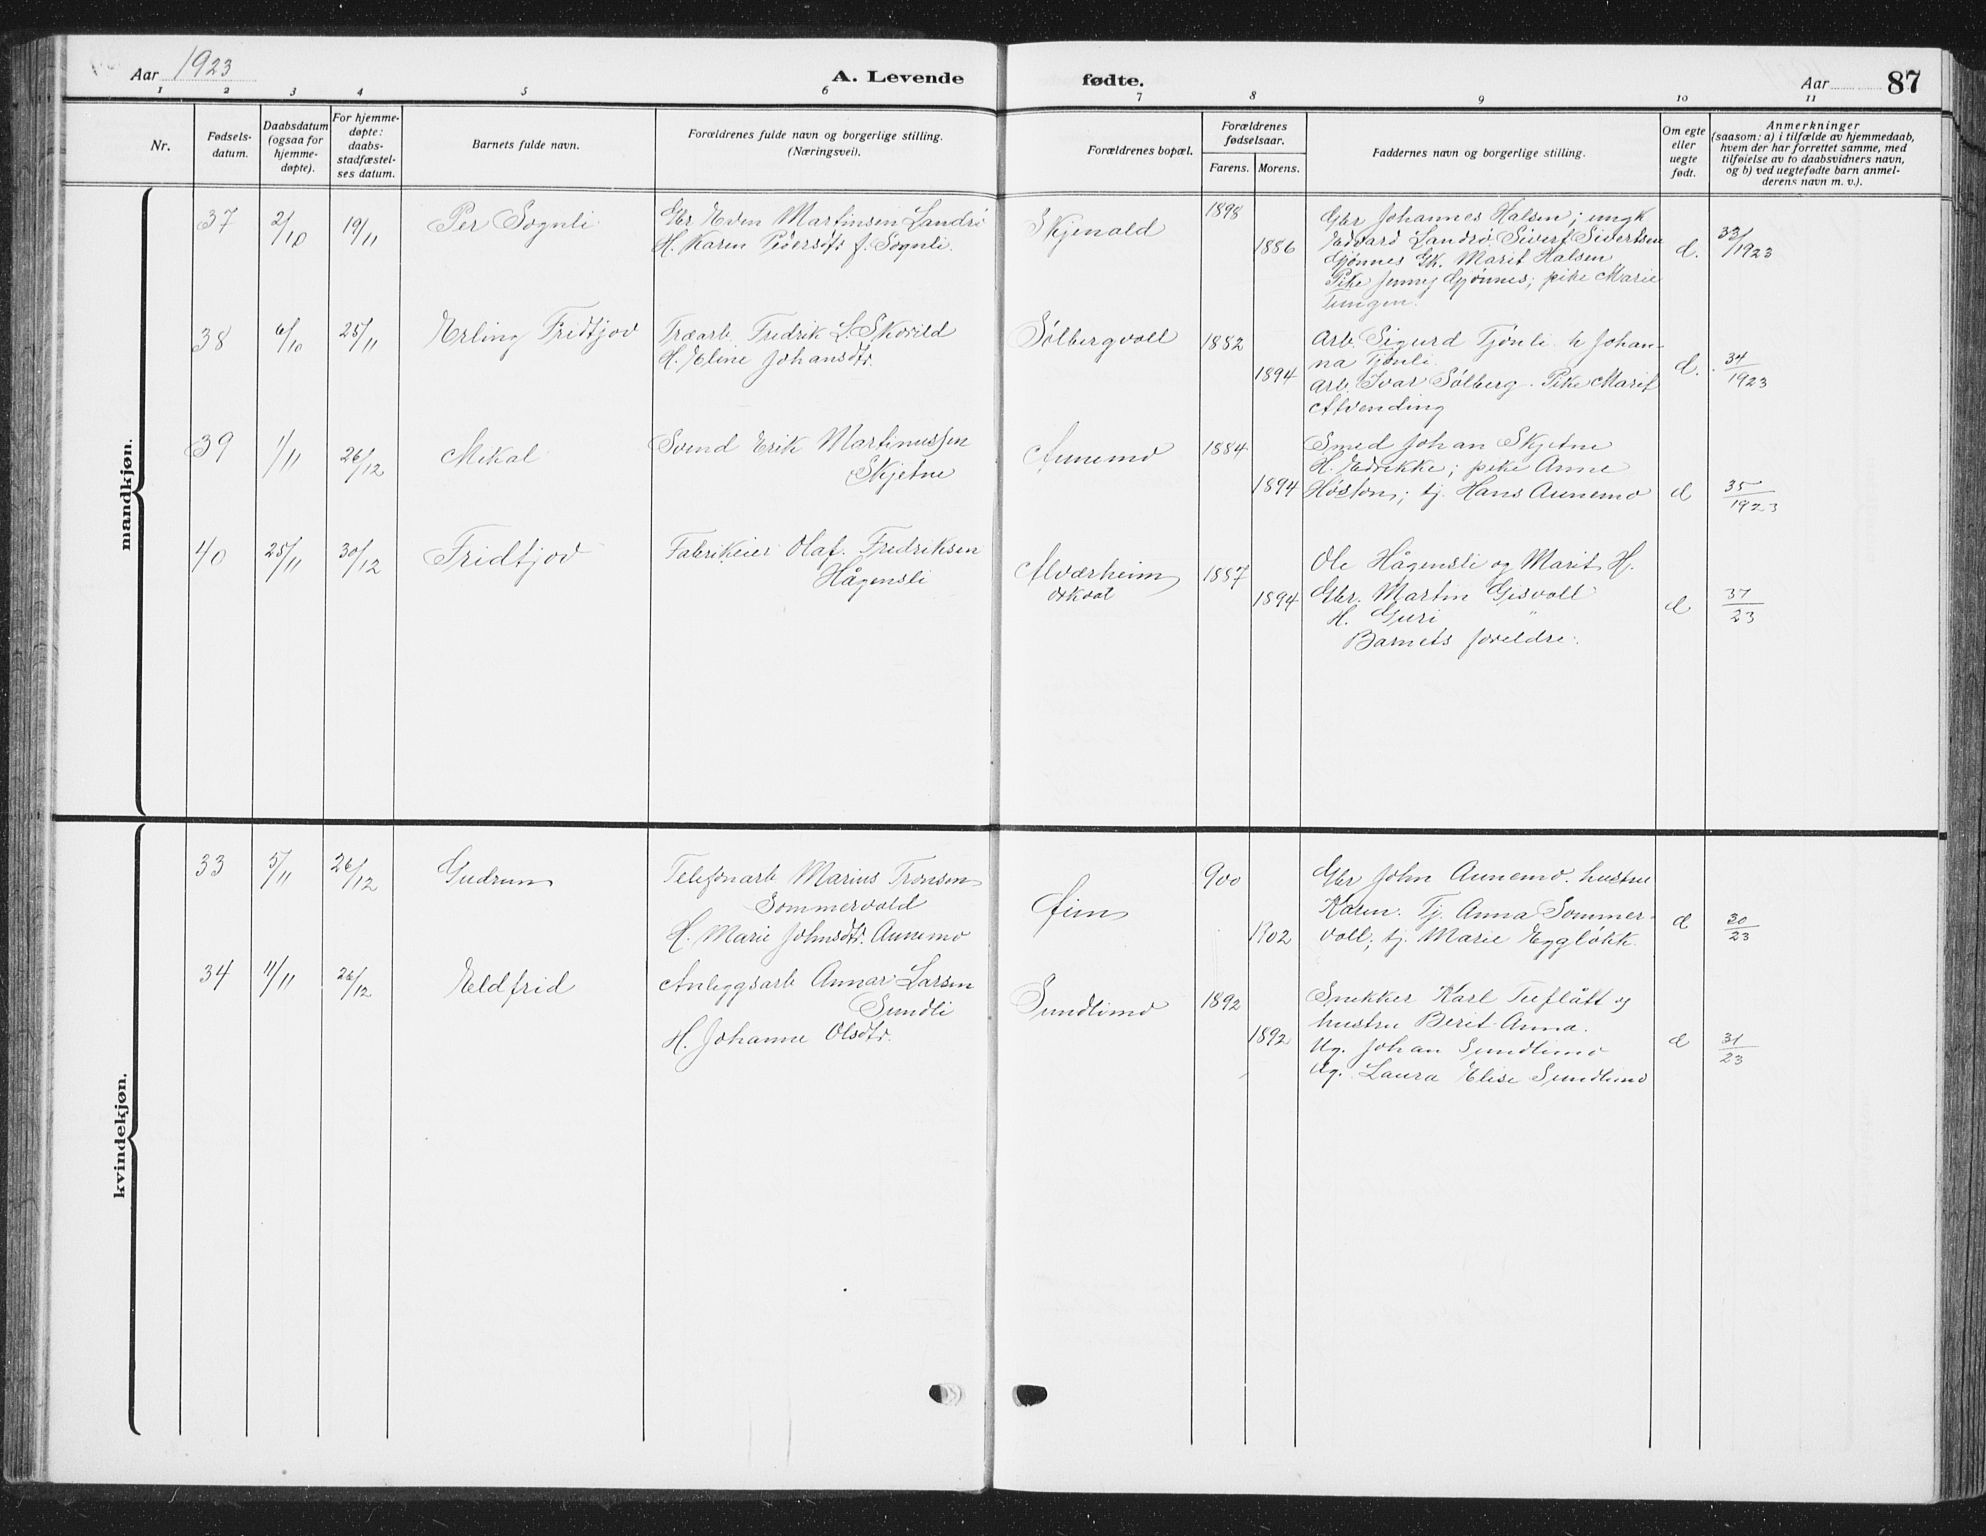 Aar 1923
A. Levende
fødte.
Aar
87
1 2 3 4 5 6 7 8 9 10 11
Nr.
Fødsels-
datum.
Daabsdatum
(ogsaa for
hjemme-
døpte).
For hjemme-
døpte:
daabs-
stadfæstel-
ses datum.
Barnets fulde navn.
Forældrenes fulde navn og borgerlige stilling.
(Næringsvei).
Forældrenes bopæl.
Forældrenes
fødselsaar.
Farens. Morens.
Faddernes navn og borgerlige stilling.
Om egte
eller
uegte
født.
Anmerkninger
(saasom: a) i tilfælde av hjemmedaab,
hvem der har forrettet samme, med
tilføielse av to daabsvidners navn,
og b) ved uegtefødte barn anmel-
derens navn m. v.).
mandkjøn.
37 2/10 19/11 Per Sognli
Gbr Even Martinsen Landrø
H. Karen Pedersdtr f. Sognli.
Skjenald
1898
1886
Gbr Johannes Halsen; ungk
Edvard Landrø Sivert Sivertsen
Gjønnes Gk. Marit Halsen
Pike Jenny Gjønnes; pike Marie
Tungen.
d.
33/1923
38 6/10 25/11 Erling Fridtjov
Træarb. Fredrik L. Skorild
H. Eline Johansdtr.
Sølbergvoll
1882
1894
Arb. Sigurd Tjønli. h Johan-
na Tjønli.
Arb. Ivar Sølberg. Pike Marit
Alvending
d.
34/1923
39 1/11 26/12 Mikal
Svend Erik Martinussen
Skjetne
Aunemo
1884
1894
Smed Johan Skjetne
H. Edrikke; pike Anne
Høston; tj. Hans Aunemo
d
35/1923
40 25/11 30/12 Fridtjov
Fabrikeier Olaf Fredriksen
Hågensli
Alværheim
1887
1894
Ole Hågensli og Marit H.
Gbr. Martin Gisvoll
H. Guri "
Barnets foreldre.
d
37/23
kvindekjøn.
33 5/11 26/12 Gudrun
Telefonarb Marius Tronsen
Sommervold
H. Marie Johnsdtr. Aunemo
Øim
900
1902
Gbr John Aunemo. hustru
Karen. Tj. Anna Sommer-
voll, tj. Marie Eggløkk.
d
30/23
34 11/11 26/12 Eldfrid
Anleggsarb Annar Larsen
Sundli
H. Johanne Olsdtr.
Sundlimo
1892
1892
Snekker Karl Tuflått og
hustru Berit Anna.
Ug. Johan Sundlimo
Ug. Laura Elise Sundlimo
d
31/23